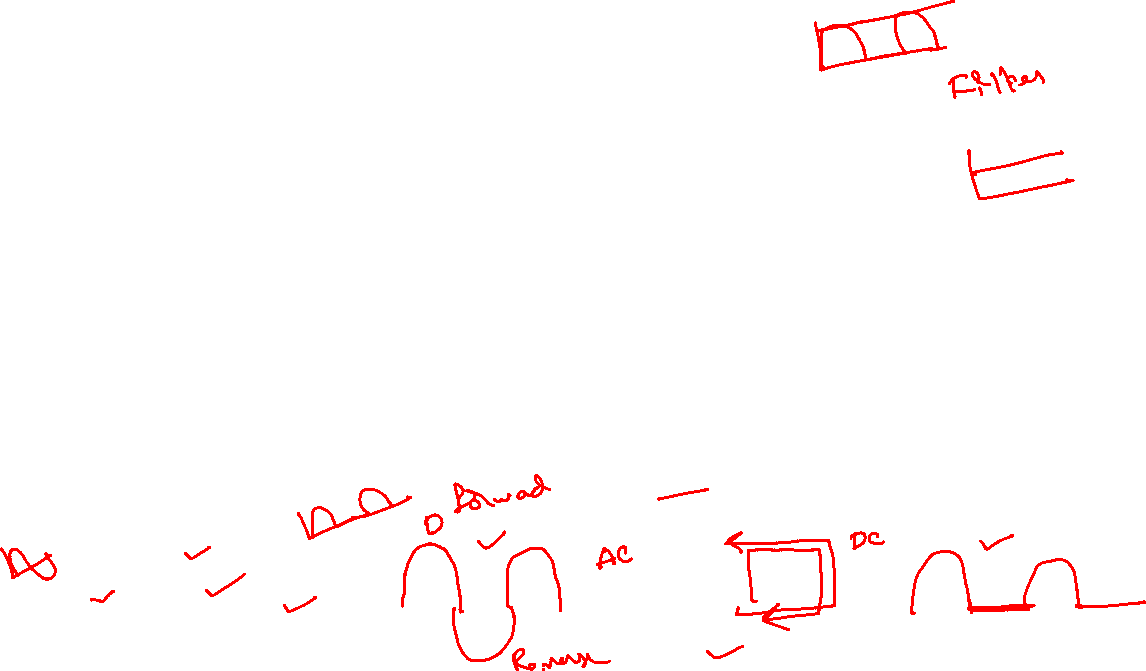 Filter
D
Forwad
AC
DC
Reverse